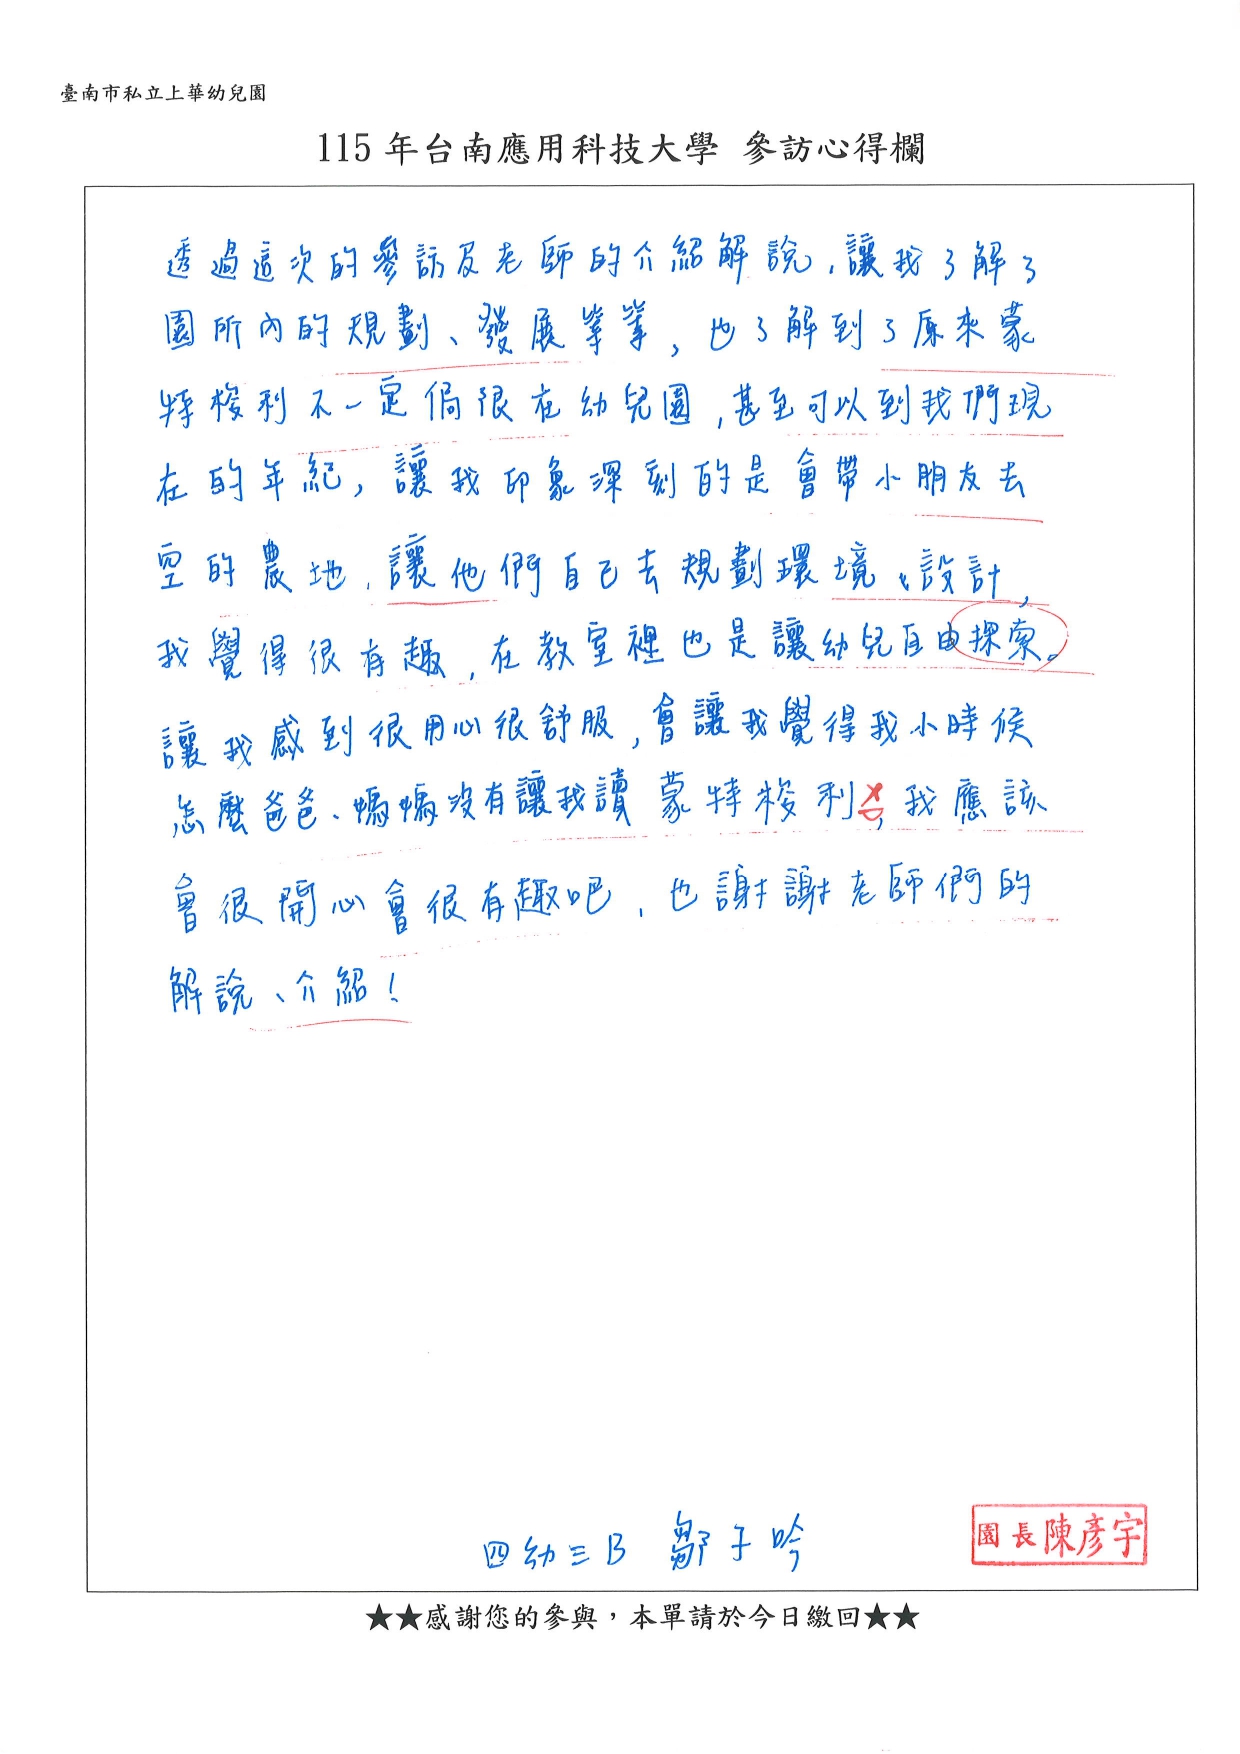 臺南市私立上華幼兒園
115 年台南應用科技大學 參訪心得欄
透過這次的參訪及老師的介紹解說,讓我了解了
園所內的規劃、發展等等,也了解到了原來蒙
特梭利不一定侷限在幼兒園,甚至可以到我們現
在的年紀,讓我印象深刻的是會帶小朋友去
空的農地,讓他們自己去規劃環境、設計,
我覺得很有趣,在教室裡也是讓幼兒自由探索。
讓我感到很用心很舒服,會讓我覺得我小時候
怎麼爸爸、媽媽沒有讓我讀蒙特梭利,我應該
會很開心會很有趣吧,也謝謝老師們的
解說、介紹!
四幼三B 鄒子吟
園長陳彥宇
★★感謝您的參與,本單請於今日繳回★★